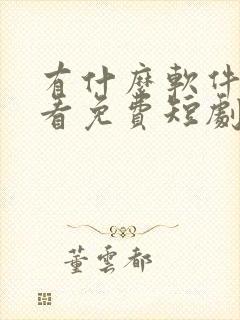 有什麼軟件
看免費短劇
董雲都